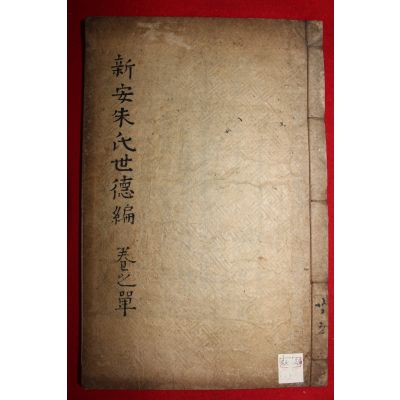 新安朱氏世德編 卷之單